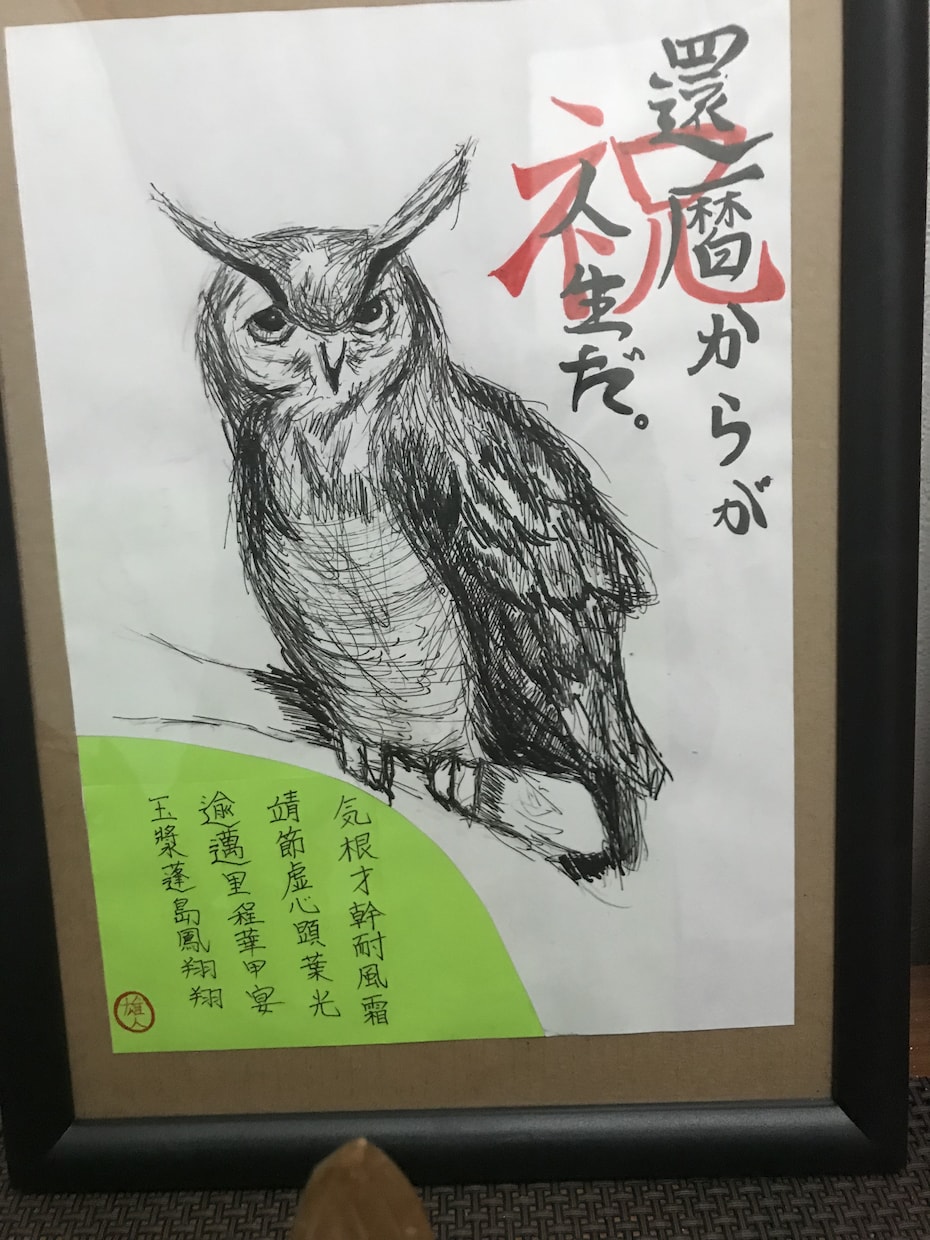 祝
還暦からが
人生だ。
気根才幹耐風霜
靖節虚心顕葉光
逾邁里程華甲宴
玉漿蓬島鳳翔翔
雄人